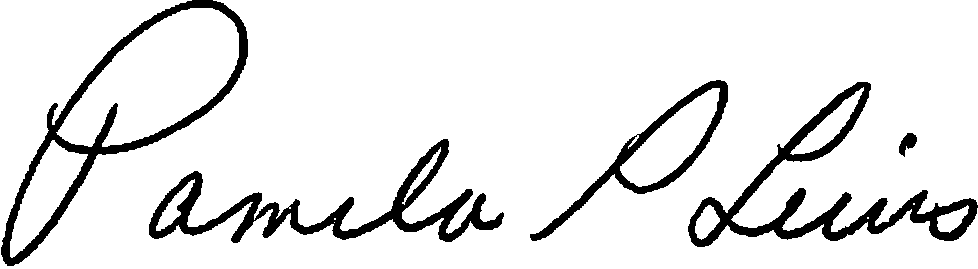 Pamela P Lewis